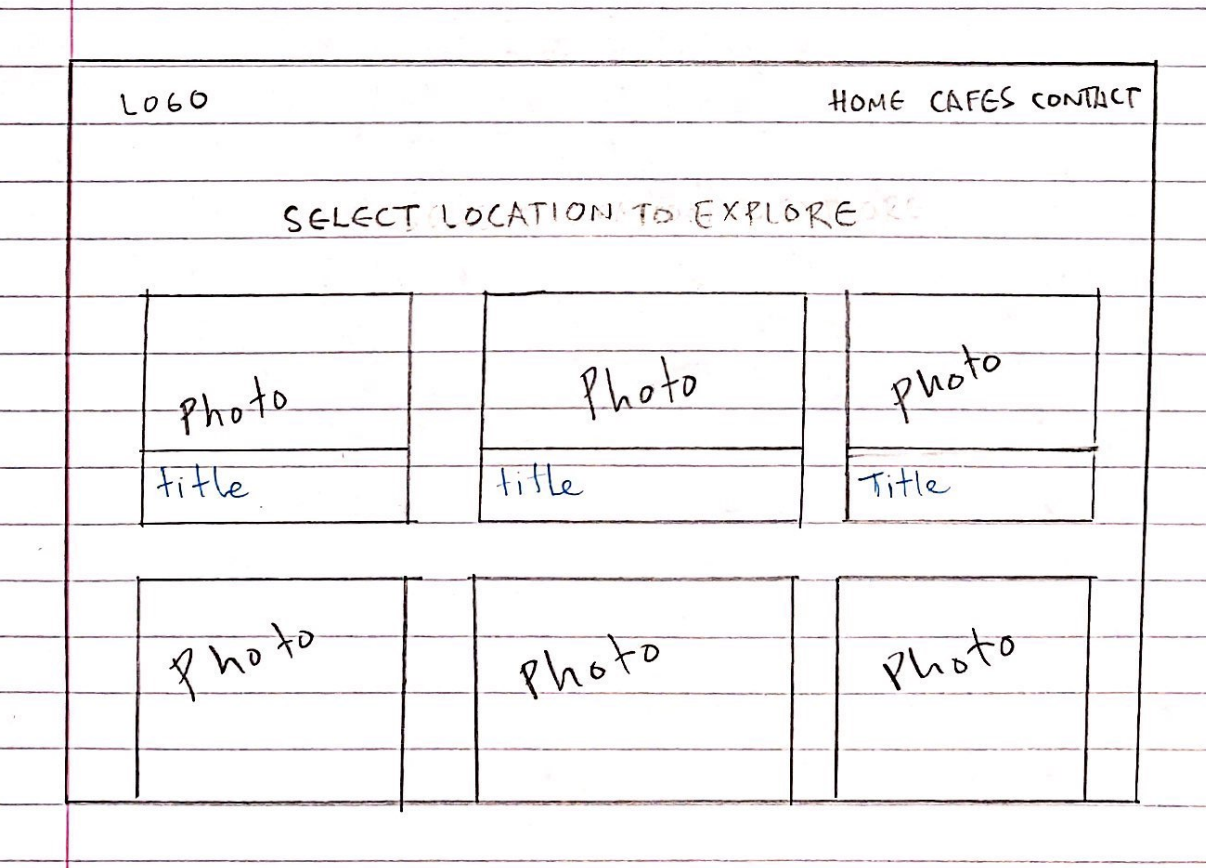 LOGO HOME CAFES CONTACT
SELECT LOCATION TO EXPLORE
Photo Photo Photo
title title Title
Photo Photo Photo